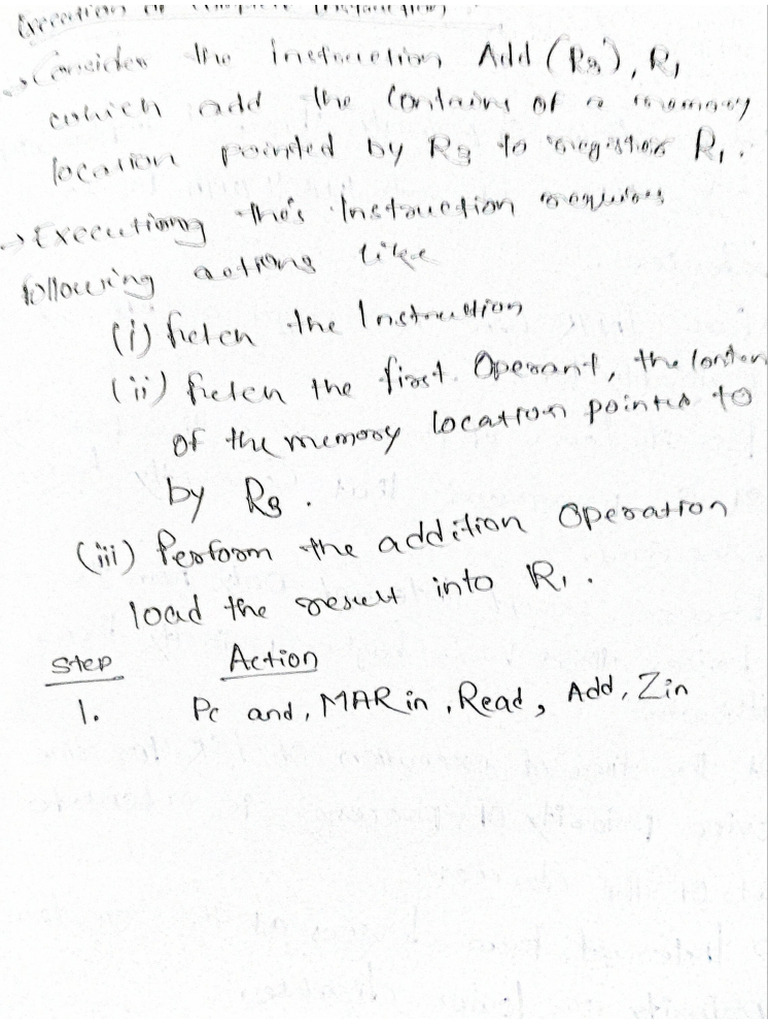 Execution of complete instruction
→ Consider the instruction Add (R3), R1
which add the Contains of a memory
location pointed by R3 to register R1.
→ Executiong this Instruction requires
following actions like
(i) fetch the Instruction
(ii) fetch the first Operant, the conten
of the memory location pointed to
by R3.
(iii) Perform the addition Operation
load the result into R1.
Step Action
1. Pc and, MAR in, Read, Add, Zin